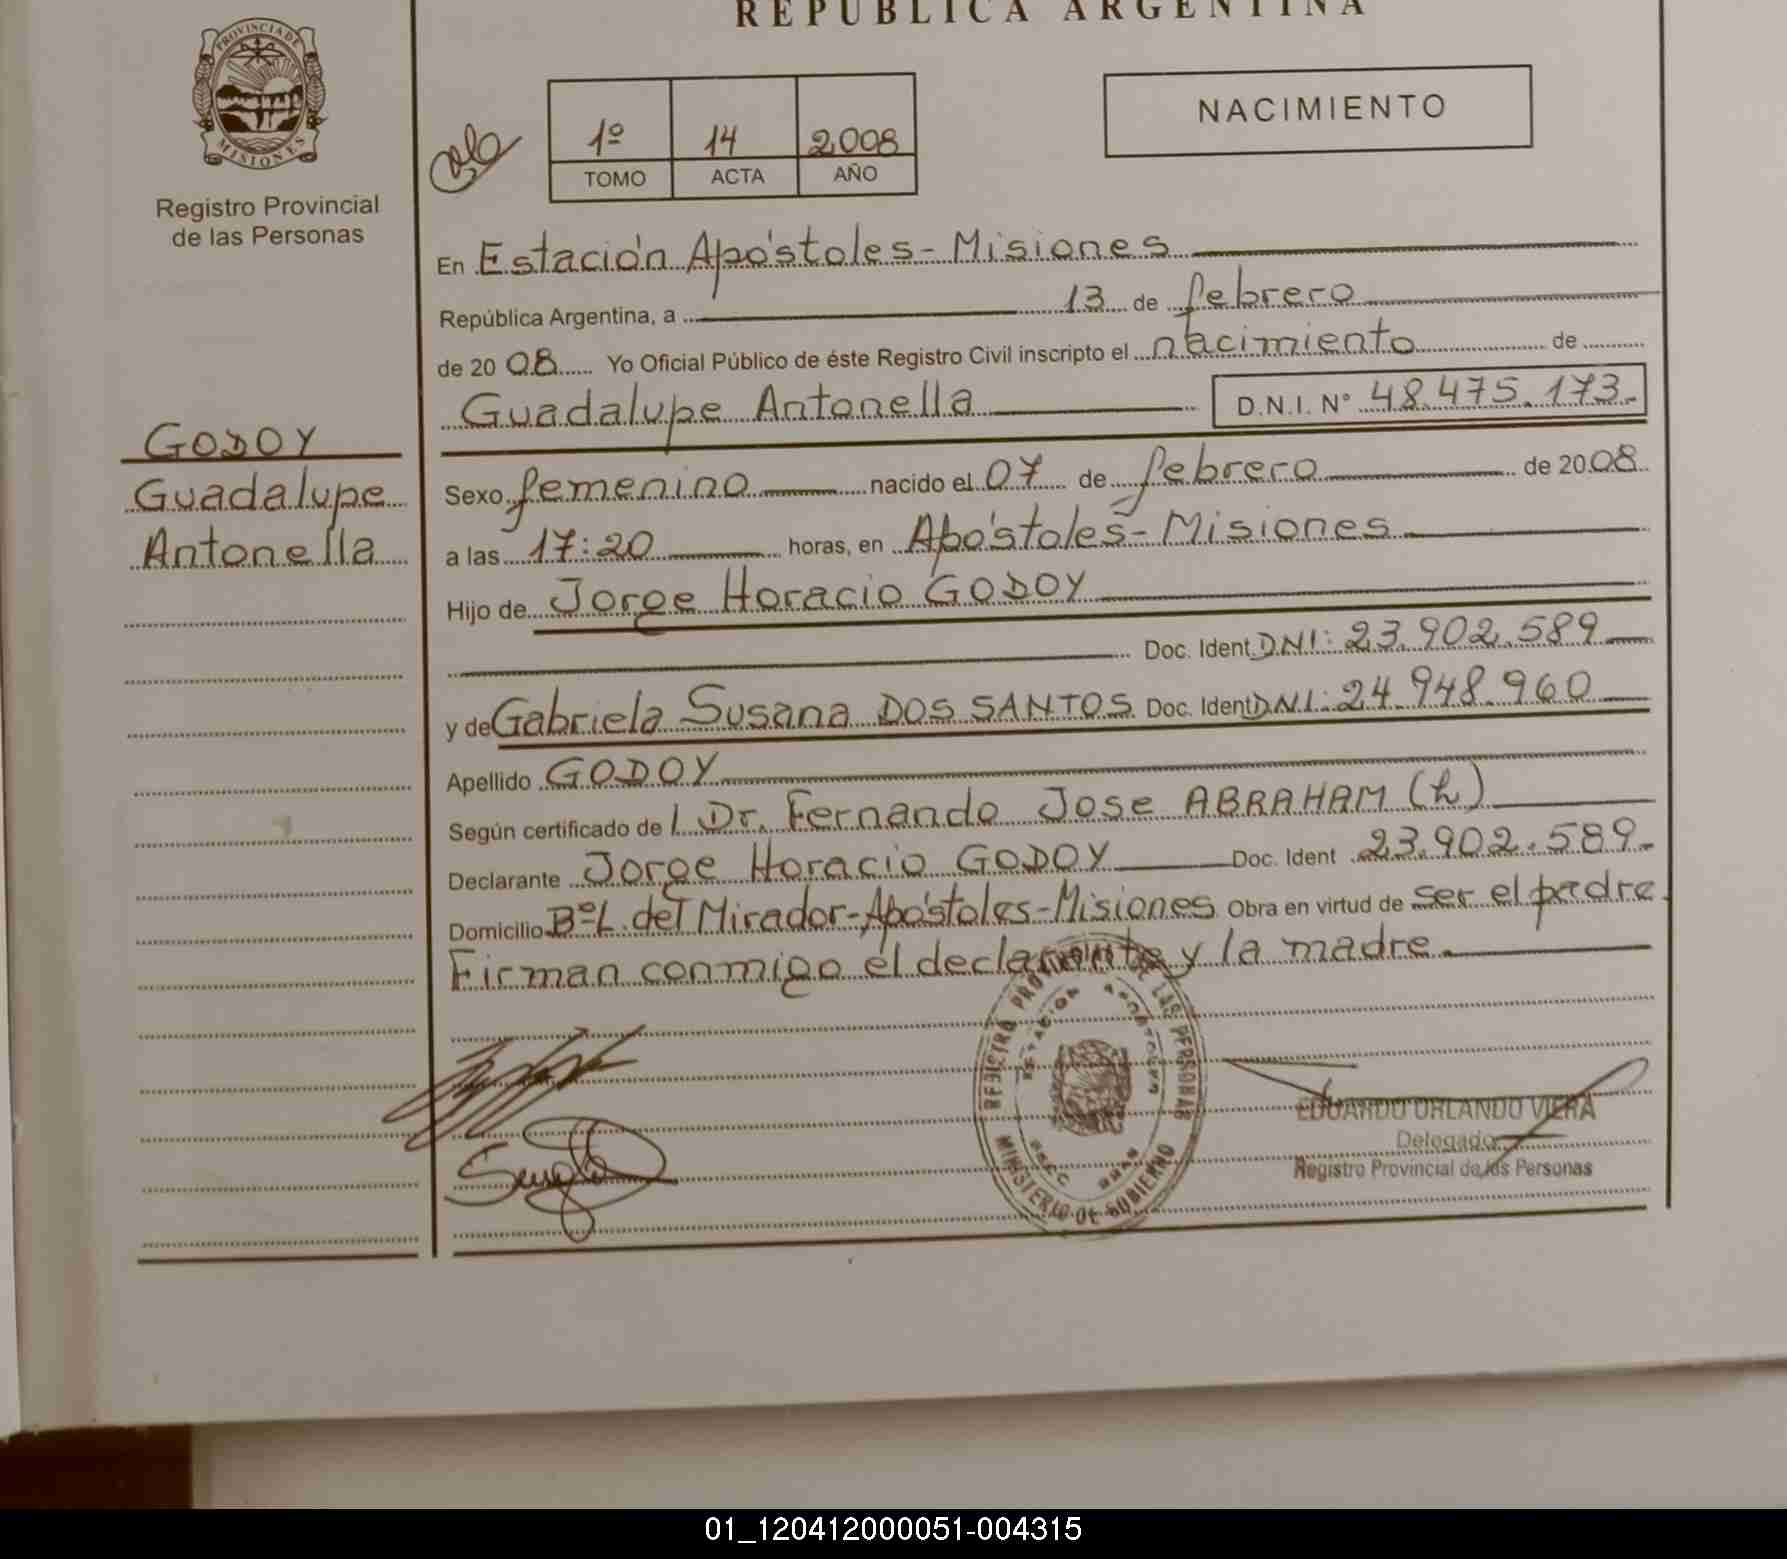 REPUBLICA ARGENTINA
PROVINCIA DE
MISIONES
Registro Provincial
de las Personas
1º 14 2008
TOMO ACTA AÑO
NACIMIENTO
En Estación Apóstoles - Misiones
República Argentina, a 13 de febrero
de 20 08 Yo Oficial Público de éste Registro Civil inscripto el nacimiento de
Guadalupe Antonella D.N.I. Nº 48.475.173.-
GODOY
Guadalupe
Antonella
Sexo femenino nacido el 07 de febrero de 20 08
a las 17:20 horas, en Apóstoles - Misiones
Hijo de Jorge Horacio GODOY
Doc. Ident DNI: 23.902.589
y de Gabriela Susana DOS SANTOS Doc. Ident DNI: 24.948.960
Apellido GODOY
Según certificado de l Dr. Fernando Jose ABRAHAM (h)
Declarante Jorge Horacio GODOY Doc. Ident 23.902.589.-
Domicilio Bº L. del Mirador - Apóstoles - Misiones Obra en virtud de ser el padre.
Firman conmigo el declarante y la madre.
REGISTRO PROV. DE LAS PERSONAS
ESTACION APOSTOLES
MINISTERIO DE GOBIERNO
EDUARDO ORLANDO VIERA
Delegado
Registro Provincial de las Personas
01_120412000051-004315